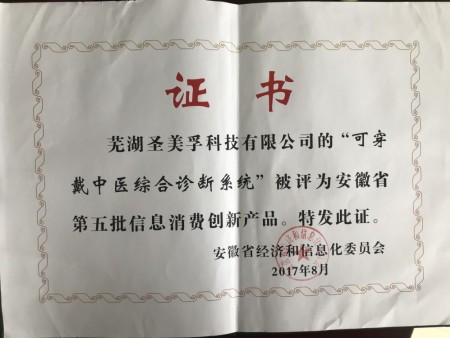 证书
芜湖圣美孚科技有限公司的“可穿
戴中医综合诊断系统”被评为安徽省
第五批信息消费创新产品。特发此证。
安徽省经济和信息化委员会
2017年8月